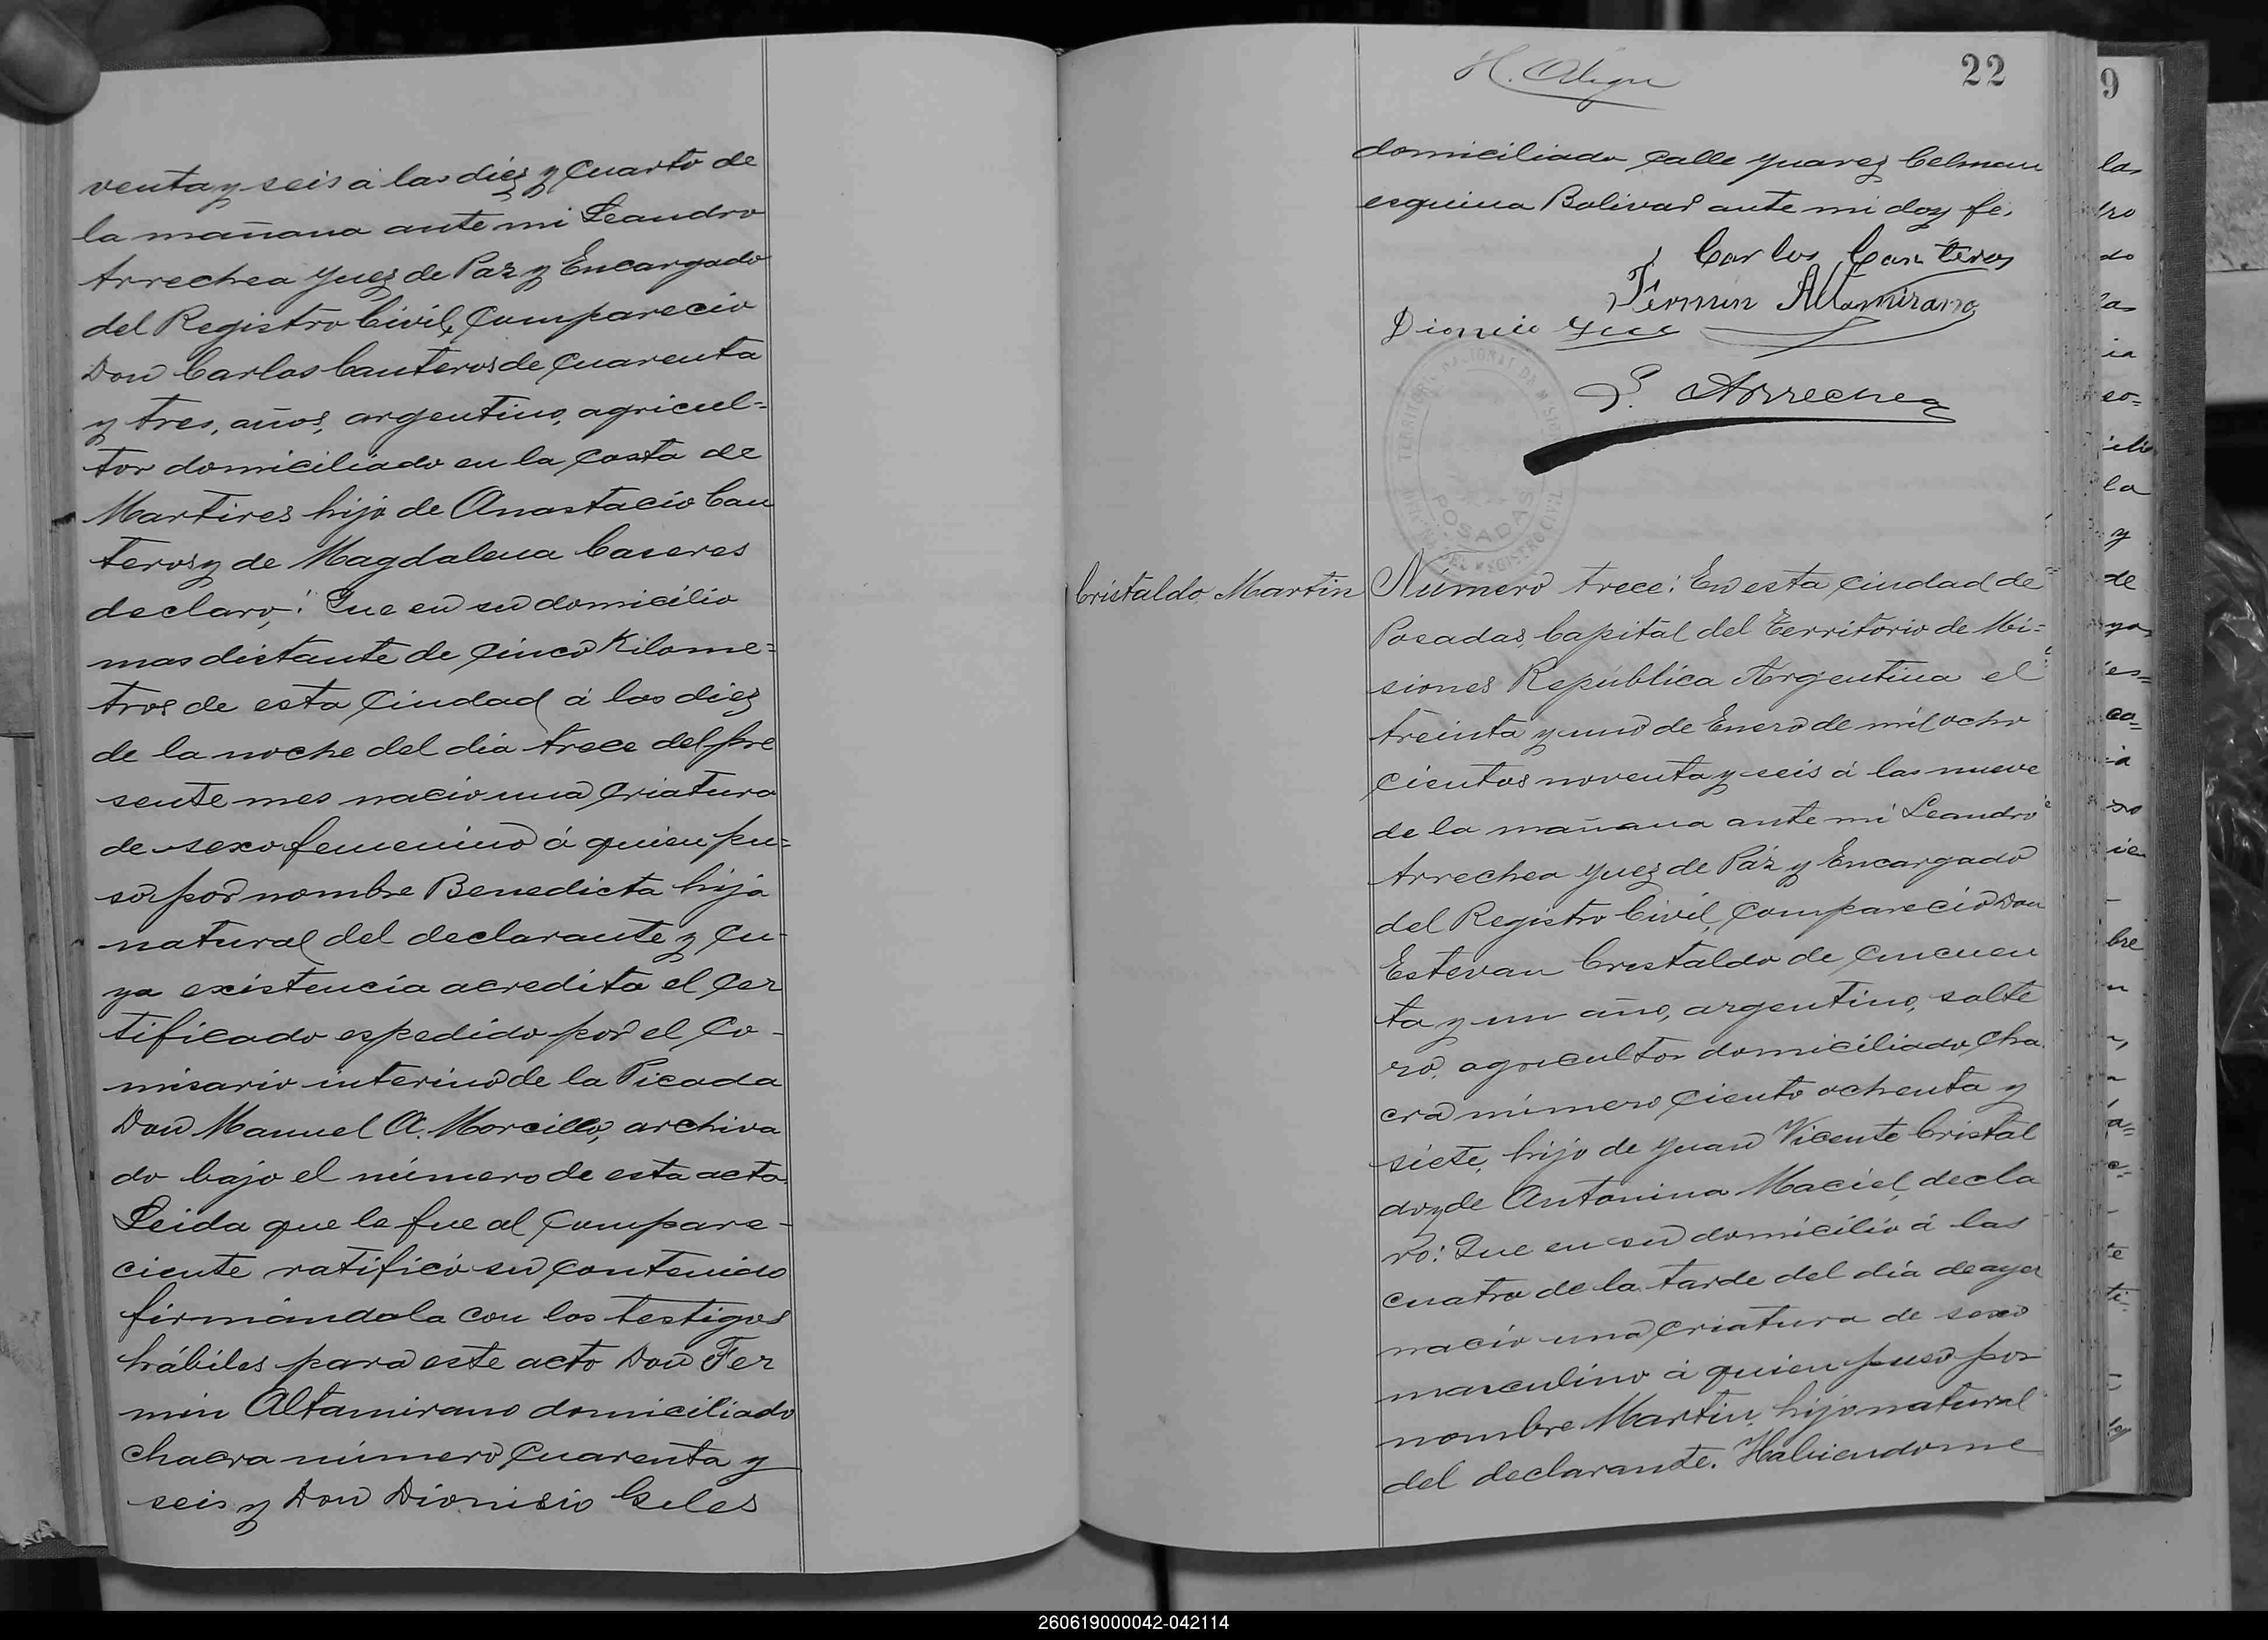 venta y seis á las diéz y cuarto de
la mañana ante mi Leandro
Arrechea Juez de Paz y Encargado
del Registro Civil, Comparecio
Don Carlos Canteros de cuarenta
y tres, años, argentino, agricul=
tor domiciliado en la costa de
Martires hijo de Anastacio Can
teros y de Magdalena Caseres
declaro,: Que en su domicilio
mas distante de cinco Kilome=
tros de esta Ciudad á las diez
de la noche del dia trece del pre
sente mes nacio una criatura
de sexo femenino á quien pu=
so por nombre Benedicta hija
natural del declarante y cu-
ya existencia acredita el cer
tificado espedido por el Co-
misario interino de la Picada
Don Manuel A. Morcillo, archiva
do bajo el número de esta acta
Leida que le fue al compare-
ciente ratificó su contenido
firmándola con los testigos
hábiles para este acto Don Fer
min Altamirano domiciliado
chacra número cuarenta y
seis y Don Dionisio Geles
22
domiciliado calle Juarez Celman
esquina Bolivar ante mi doy fe.
Carlos Canteros
Fermin Altamirano
Dionicio
L. Arrechea
POSADAS
DEL REGISTRO CIVIL
Cristaldo Martin
Número trece: En esta Ciudad de
Posadas, Capital del Territorio de Mi=
siones República Argentina el
treinta y uno de Enero de mil ocho
cientos noventa y seis á las nueve
de la mañana ante mi Leandro
Arrechea Juez de Páz y Encargado
del Registro Civil, Compareció Don
Estevan Cristaldo de cincuen
ta y un año, argentino, solte
ro, agricultor domiciliado cha
cra número ciento ochenta y
siete, hijo de Juan Vicente Cristal
do y de Antonina Maciel, decla
ro: Que en su domicilio á las
cuatro de la tarde del día de ayer
nacio una criatura de sexo
masculino á quien puso por
nombre Martin, hijo natural
del declarante. Habiendome
9
260619000042-042114